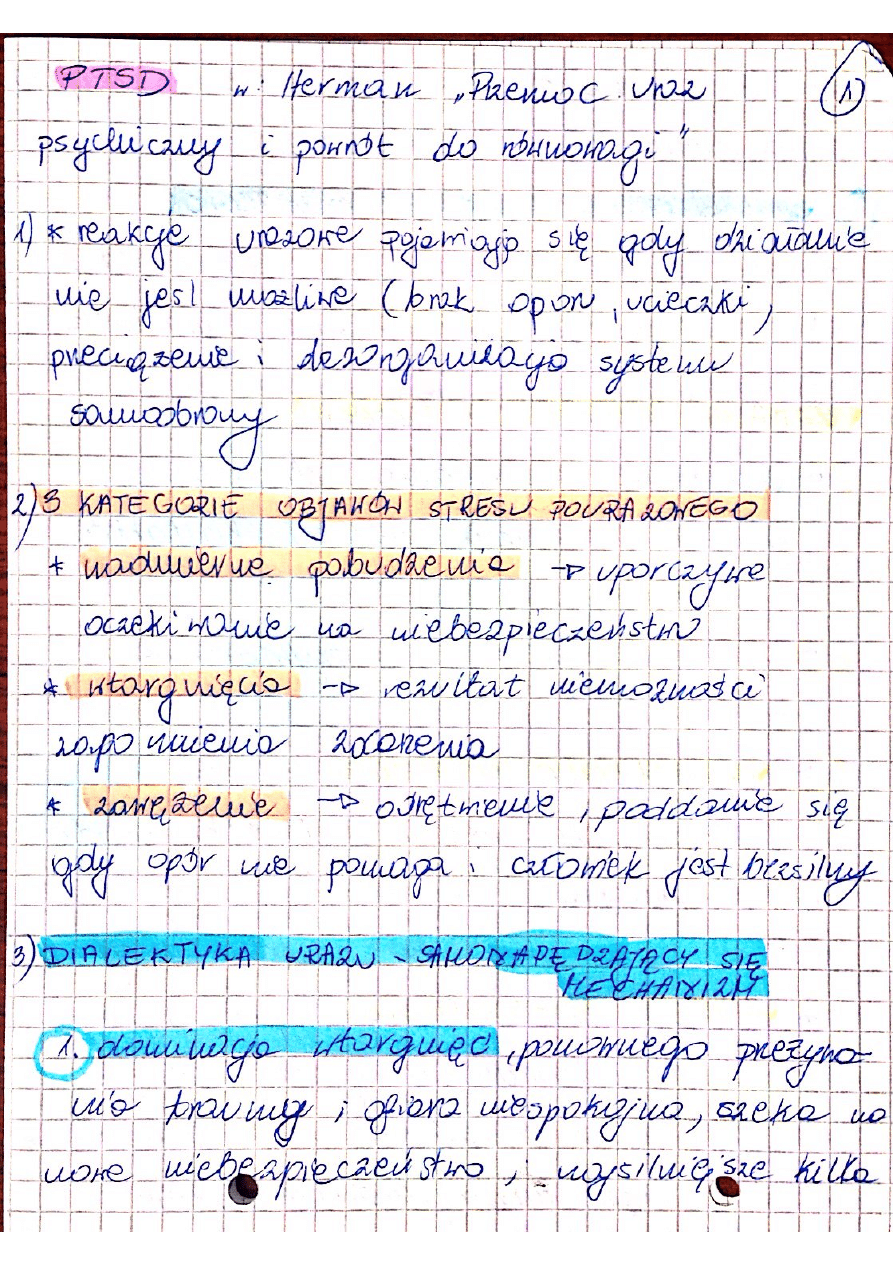 PTSD w: Herman „Przemoc uraz ①
psychiczny i powrót do równowagi"
1) * reakcje urazowe pojawiają się gdy działanie
nie jest możliwe (brak opon, ucieczki,
przeciążenie i dezorganizacja systemu
samoobrony
2) 3 KATEGORIE OBJAWÓW STRESU POURAZOWEGO
* nadmierne pobudzenia → uporczywe
oczekiwanie na niebezpieczeństwo
* wtargnięcia → rezultat niemożności
zapomnienia zdarzenia
* zawężenie → odrętwienie, poddanie się
gdy opór nie pomaga i człowiek jest bezsilny
3) DIALEKTYKA URAZU - SAMONAPĘDZAJĄCY SIĘ
MECHANIZM
1. dominacja wtargnięć, ponownego przeżywa-
nia traumy i ofiara niespokojna, czeka na
nowe niebezpieczeństwo, najsilniejsze kilka